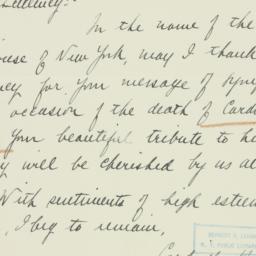 In the name of the
ouse of New York, may I thank
ey for your message of sym
occasion of the death of Card
Your beautiful tribute to h
y will be cherished by us al
With sentiments of high estee
, I beg to remain,
HERBERT H. LEHMAN